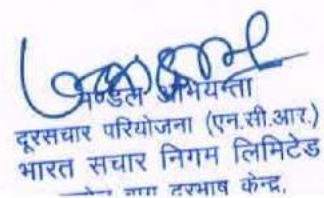 मण्डल अभियन्ता
दूरसंचार परियोजना (एन.सी.आर.)
भारत संचार निगम लिमिटेड
दूरभाष केन्द्र,